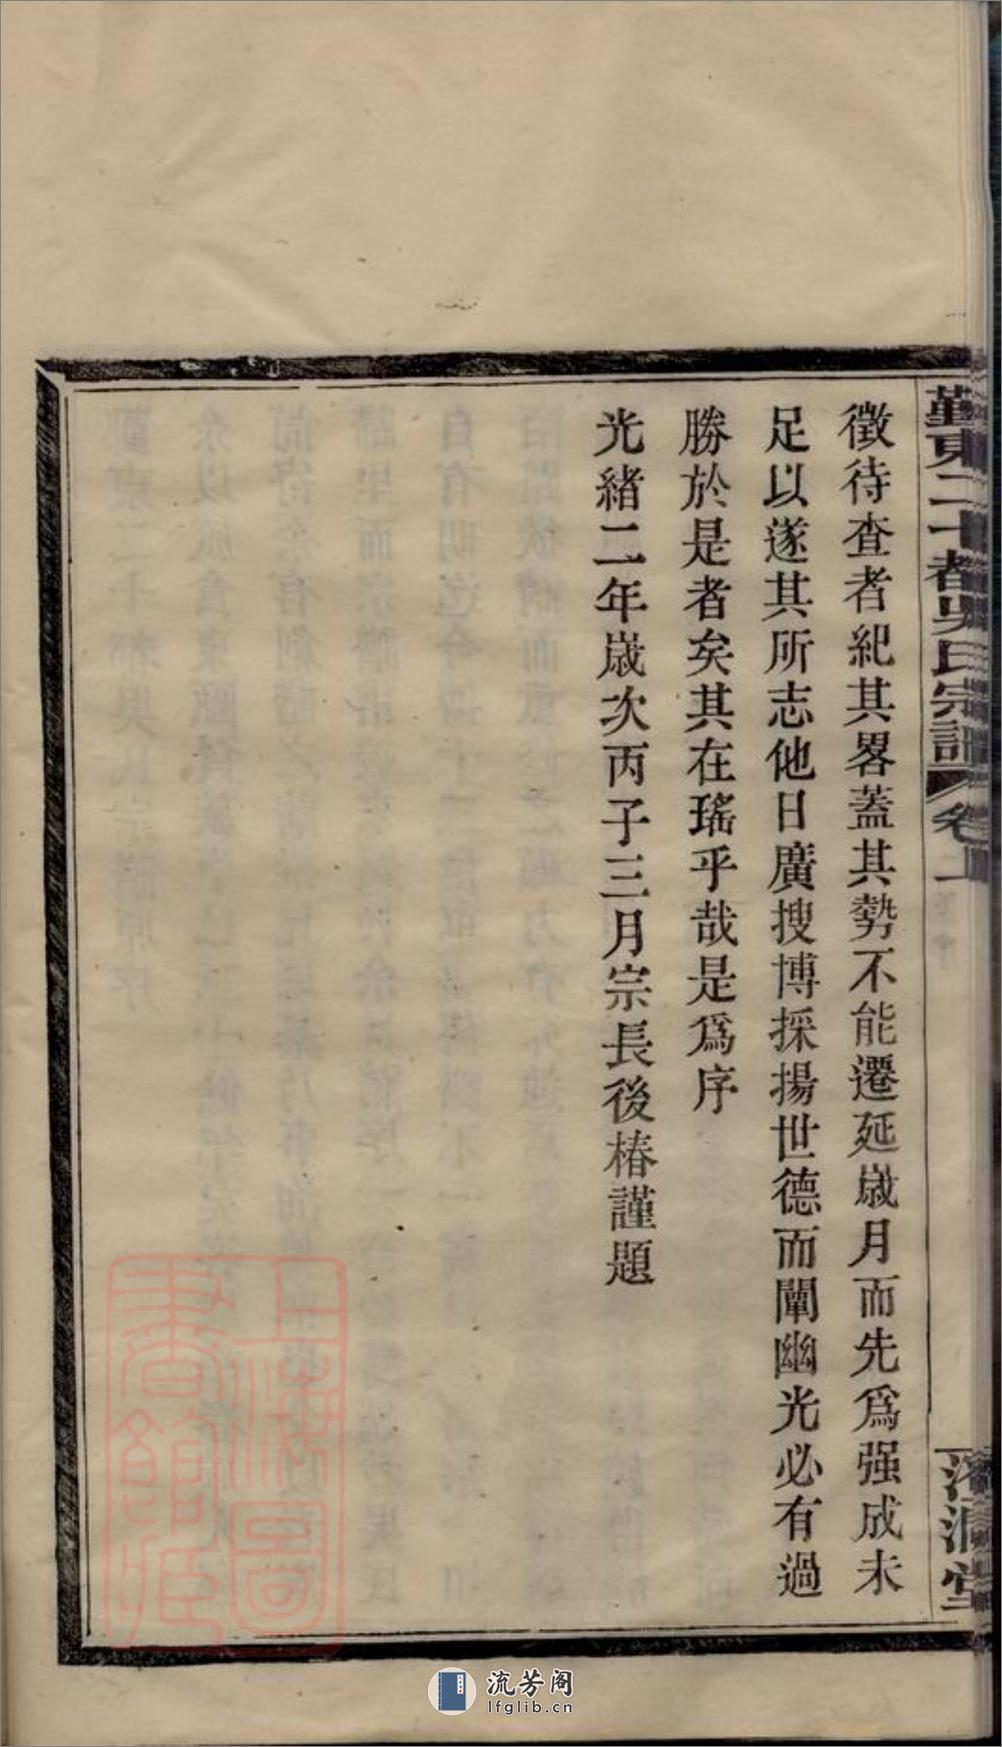 徵待查者紀其畧蓋其勢不能遷延歲月而先爲强成未
足以遂其所志他日廣搜博採揚世德而闡幽光必有過
勝於是者矣其在瑤乎哉是爲序
光緒二年歲次丙子三月宗長後椿謹題
東二十都吳氏宗譜
卷上
清堂
上海圖書館藏
流芳阁
lfglib.cn